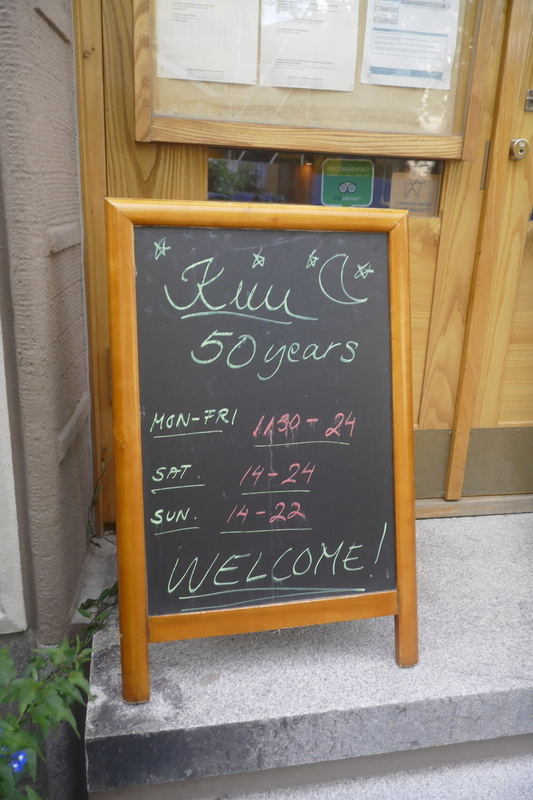 RECOMMENDED
tripadvisor
Kuu
50 years
MON-FRI 11.30 - 24
SAT. 14-24
SUN. 14-22
WELCOME!